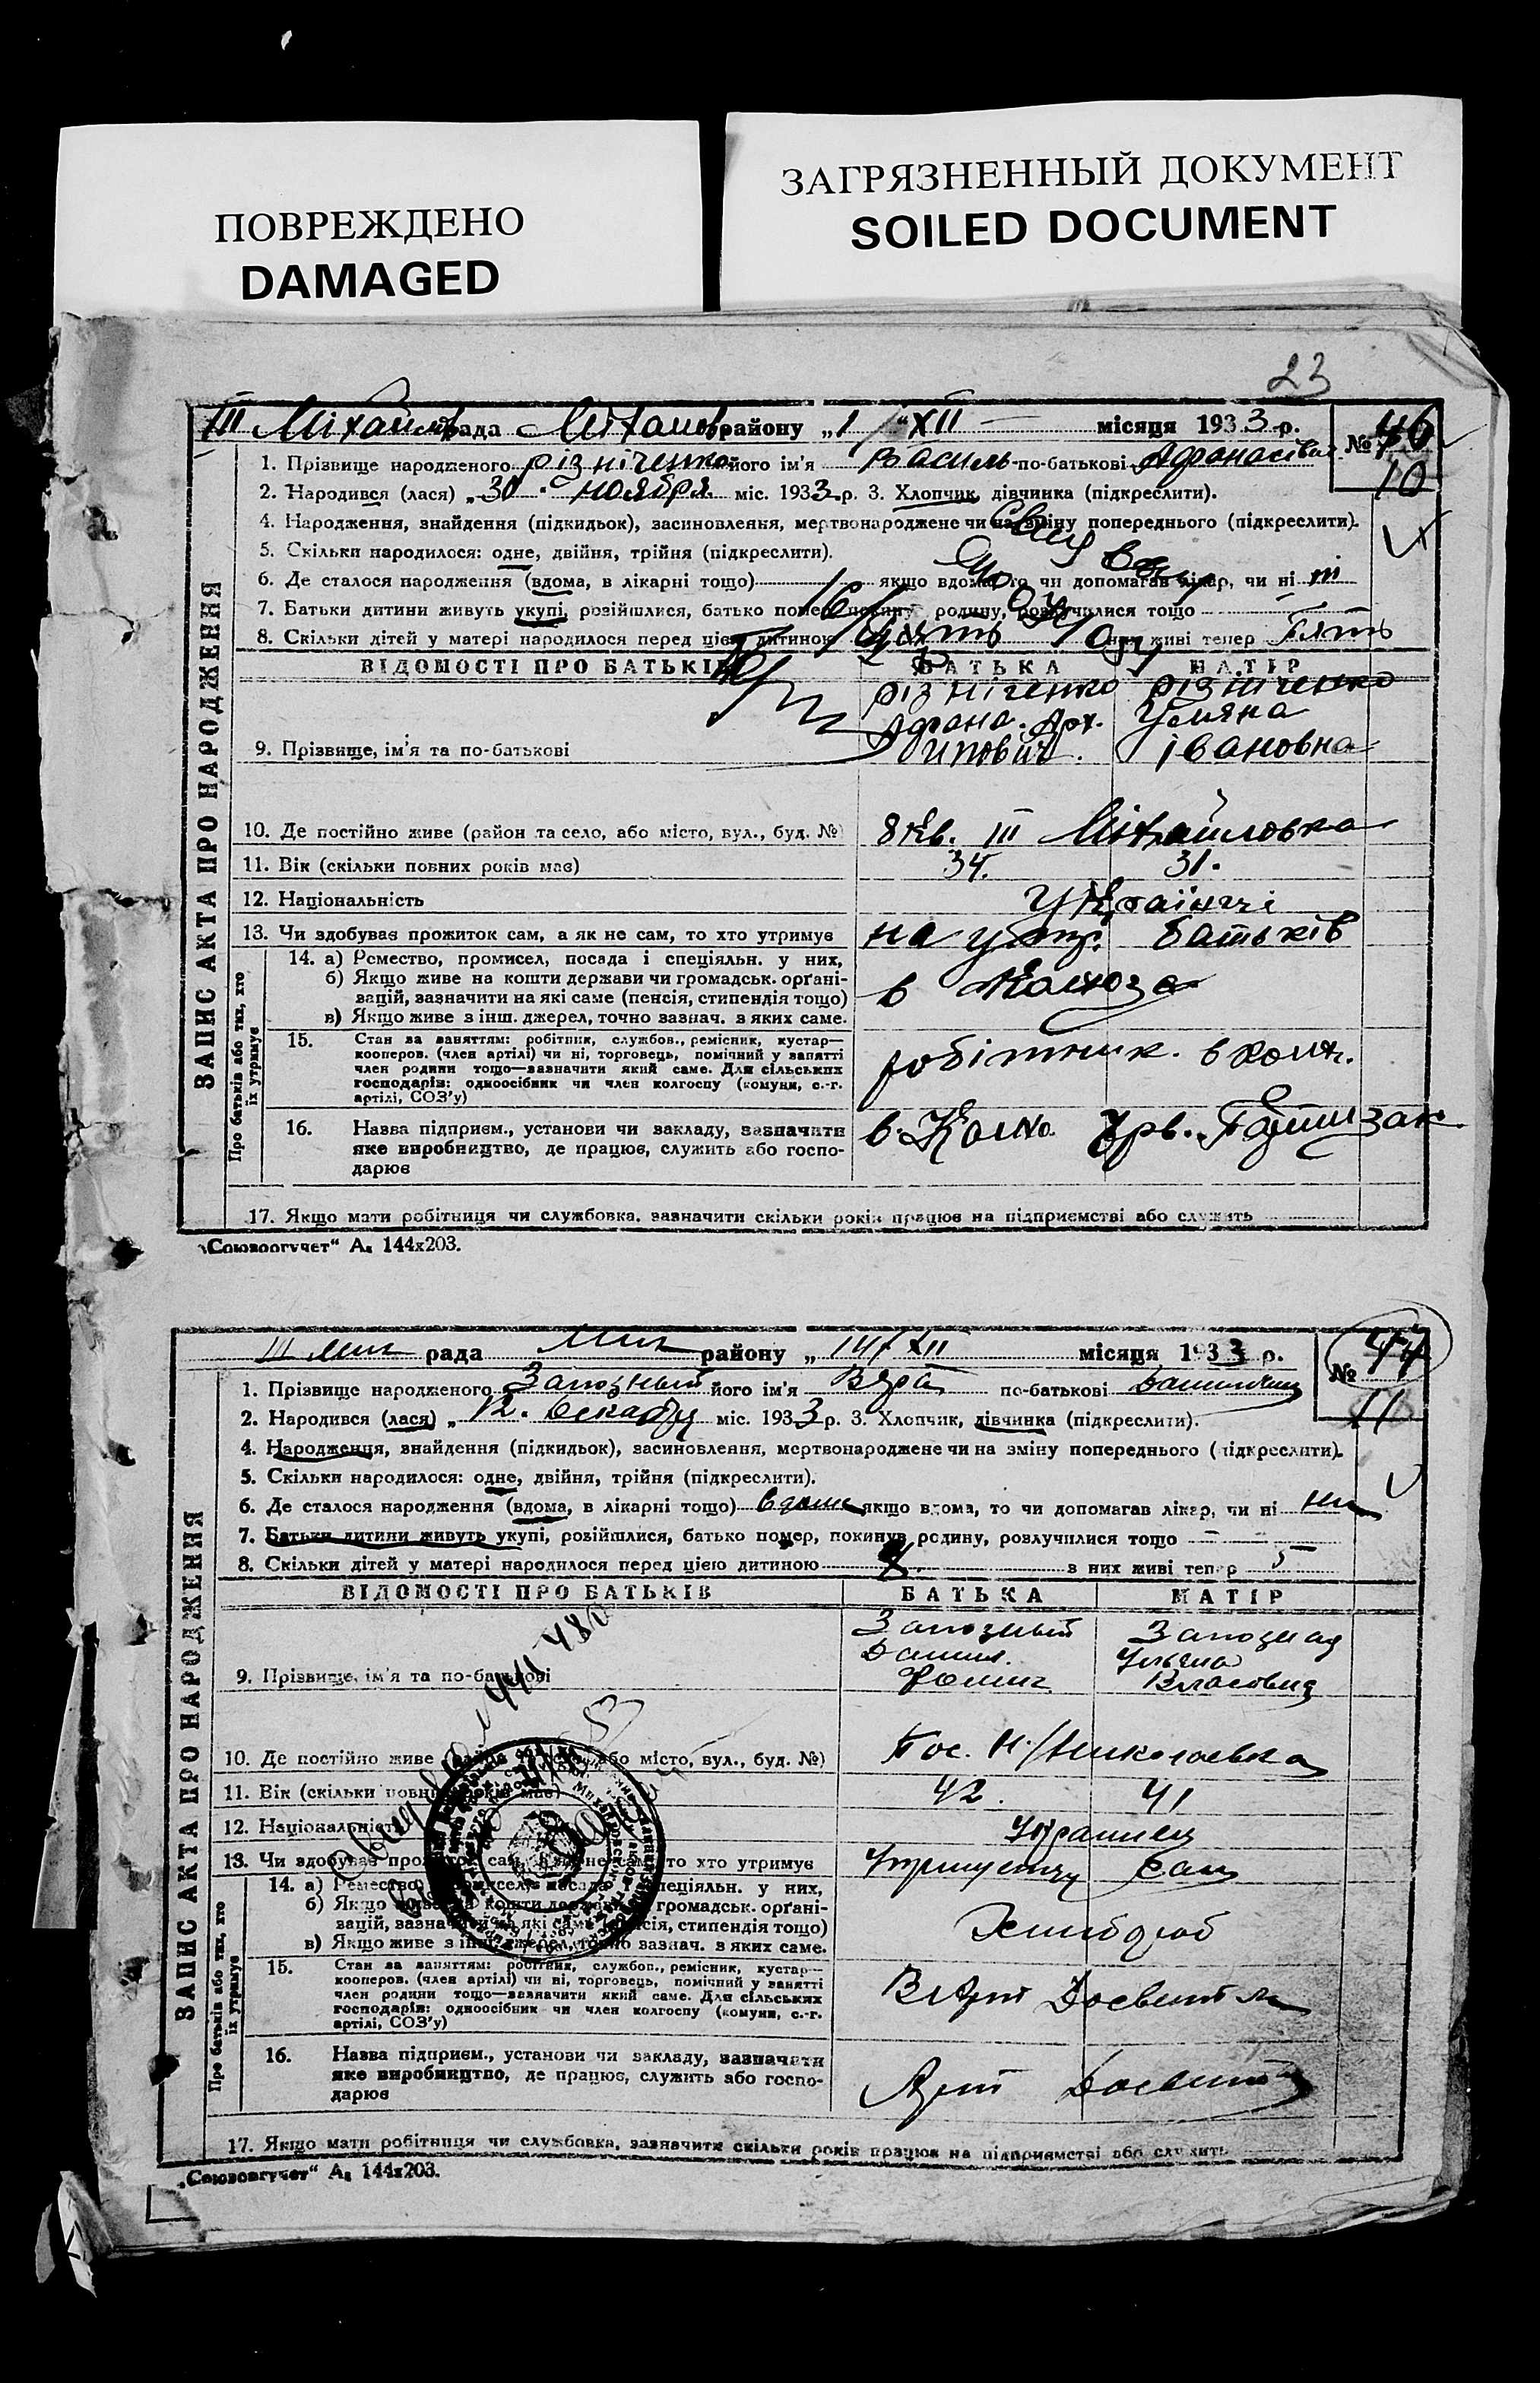 ПОВРЕЖДЕНО
DAMAGED
ЗАГРЯЗНЕННЫЙ ДОКУМЕНТ
SOILED DOCUMENT
23
ЗАПИС АКТА ПРО НАРОДЖЕННЯ
III Міхайлів рада району „1/“ XII місяця 1933 р.
№ 46
10
1. Прізвище народженого Різніченко його ім'я Василь по-батькові
2. Народився (лася) „30“ ноября міс. 1933 р. 3. Хлопчик, дівчинка (підкреслити).
4. Народження, знайдення (підкидьок), засиновлення, мертвонароджене чи на зміну попереднього (підкреслити).
5. Скільки народилося: одне, двійня, трійня (підкреслити).
6. Де сталося народження (вдома, в лікарні тощо) якщо вдома, то чи допомагав лікар, чи ні
7. Батьки дитини живуть укупі, розійшлися, батько помер, покинув родину, розлучилися тощо
8. Скільки дітей у матері народилося перед цією дитиною з них живі тепер Пять
ВІДОМОСТІ ПРО БАТЬКІВ БАТЬКА МАТІР
Різніченко Різніченко
Афана. Арх. Уляна
9. Прізвище, ім'я та по-батькові ипович. Івановна
10. Де постійно живе (район та село, або місто, вул., буд. №) III Міхайловка
11. Вік (скільки повних років має) 34. 31.
12. Національність Українці
13. Чи здобував прожиток сам, а як не сам, то хто утримує на батьків
Про батьків або тих, хто їх утримує
14. а) Ремество, промисел, посада і спеціяльн. у них,
б) Якщо живе на кошти держави чи громадськ. орґані-
зацій, зазначити на які саме (пенсія, стипендія тощо) в
в) Якщо живе з інш. джерел, точно зазнач. з яких саме.
15. Стан за заняттям: робітник, службов., ремісник, кустар—
кооперов. (член артілі) чи ні, торговець, помічний у занятті
член родини тощо—зазначити який саме. Для сільських робітник. в
господарів: одноосібник чи член колгоспу (комуни, с.-г.
артілі, СОЗ'у)
16. Назва підприєм., установи чи закладу, зазначити в.
яке виробництво, де працює, служить або госпо-
дарює
17. Якщо мати робітниця чи службовка, зазначити скільки років працює на підприємстві або служить
„Союзоргучет“ А₅ 144х203.
ЗАПИС АКТА ПРО НАРОДЖЕННЯ
III Мих рада Мих району „14/ XII місяця 1933 р.
№ 47
11
1. Прізвище народженого його ім'я Вера по-батькові
2. Народився (лася) „12. Декабря міс. 1933 р. 3. Хлопчик, дівчинка (підкреслити).
4. Народження, знайдення (підкидьок), засиновлення, мертвонароджене чи на зміну попереднього (підкреслити).
5. Скільки народилося: одне, двійня, трійня (підкреслити).
6. Де сталося народження (вдома, в лікарні тощо) вдома якщо вдома, то чи допомагав лікар, чи ні ни
7. Батьки дитини живуть укупі, розійшлися, батько помер, покинув родину, розлучилися тощо
8. Скільки дітей у матері народилося перед цією дитиною з них живі тепер 5
ВІДОМОСТІ ПРО БАТЬКІВ БАТЬКА МАТІР
Данил. Ульяна
9. Прізвище, ім'я та по-батькові Власовна
10. Де постійно живе (район та село, або місто, вул., буд. №) Пос. Н/Николаевка
11. Вік (скільки повних років має) 42. 41
12. Національність Украинец
13. Чи здобував прожиток сам, а як не сам, то хто утримує сам
Про батьків або тих, хто їх утримує
14. а) Ремество, промисел, посада і спеціяльн. у них,
б) Якщо живе на кошти держави чи громадськ. орґані-
зацій, зазначити на які саме (пенсія, стипендія тощо) Хлибороб
в) Якщо живе з інш. джерел, точно зазнач. з яких саме.
15. Стан за заняттям: робітник, службов., ремісник, кустар—
кооперов. (член артілі) чи ні, торговець, помічний у занятті
член родини тощо—зазначити який саме. Для сільських
господарів: одноосібник чи член колгоспу (комуни, с.-г.
артілі, СОЗ'у)
16. Назва підприєм., установи чи закладу, зазначити
яке виробництво, де працює, служить або госпо- Арт
дарює
17. Якщо мати робітниця чи службовка, зазначити скільки років працює на підприємстві або служить
„Союзоргучет“ А₅ 144х203.